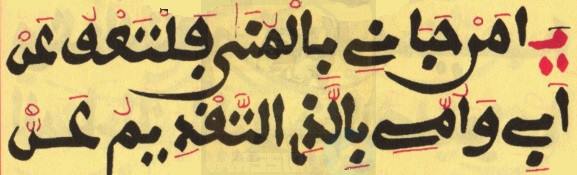 يَا مَنْ حَبَانِي بِالْمُنَى فَلْتَعْفُ عَنْ
أَبِي وَأُمِّي بِالَّذِي التَّقْدِيمُ عَنْ